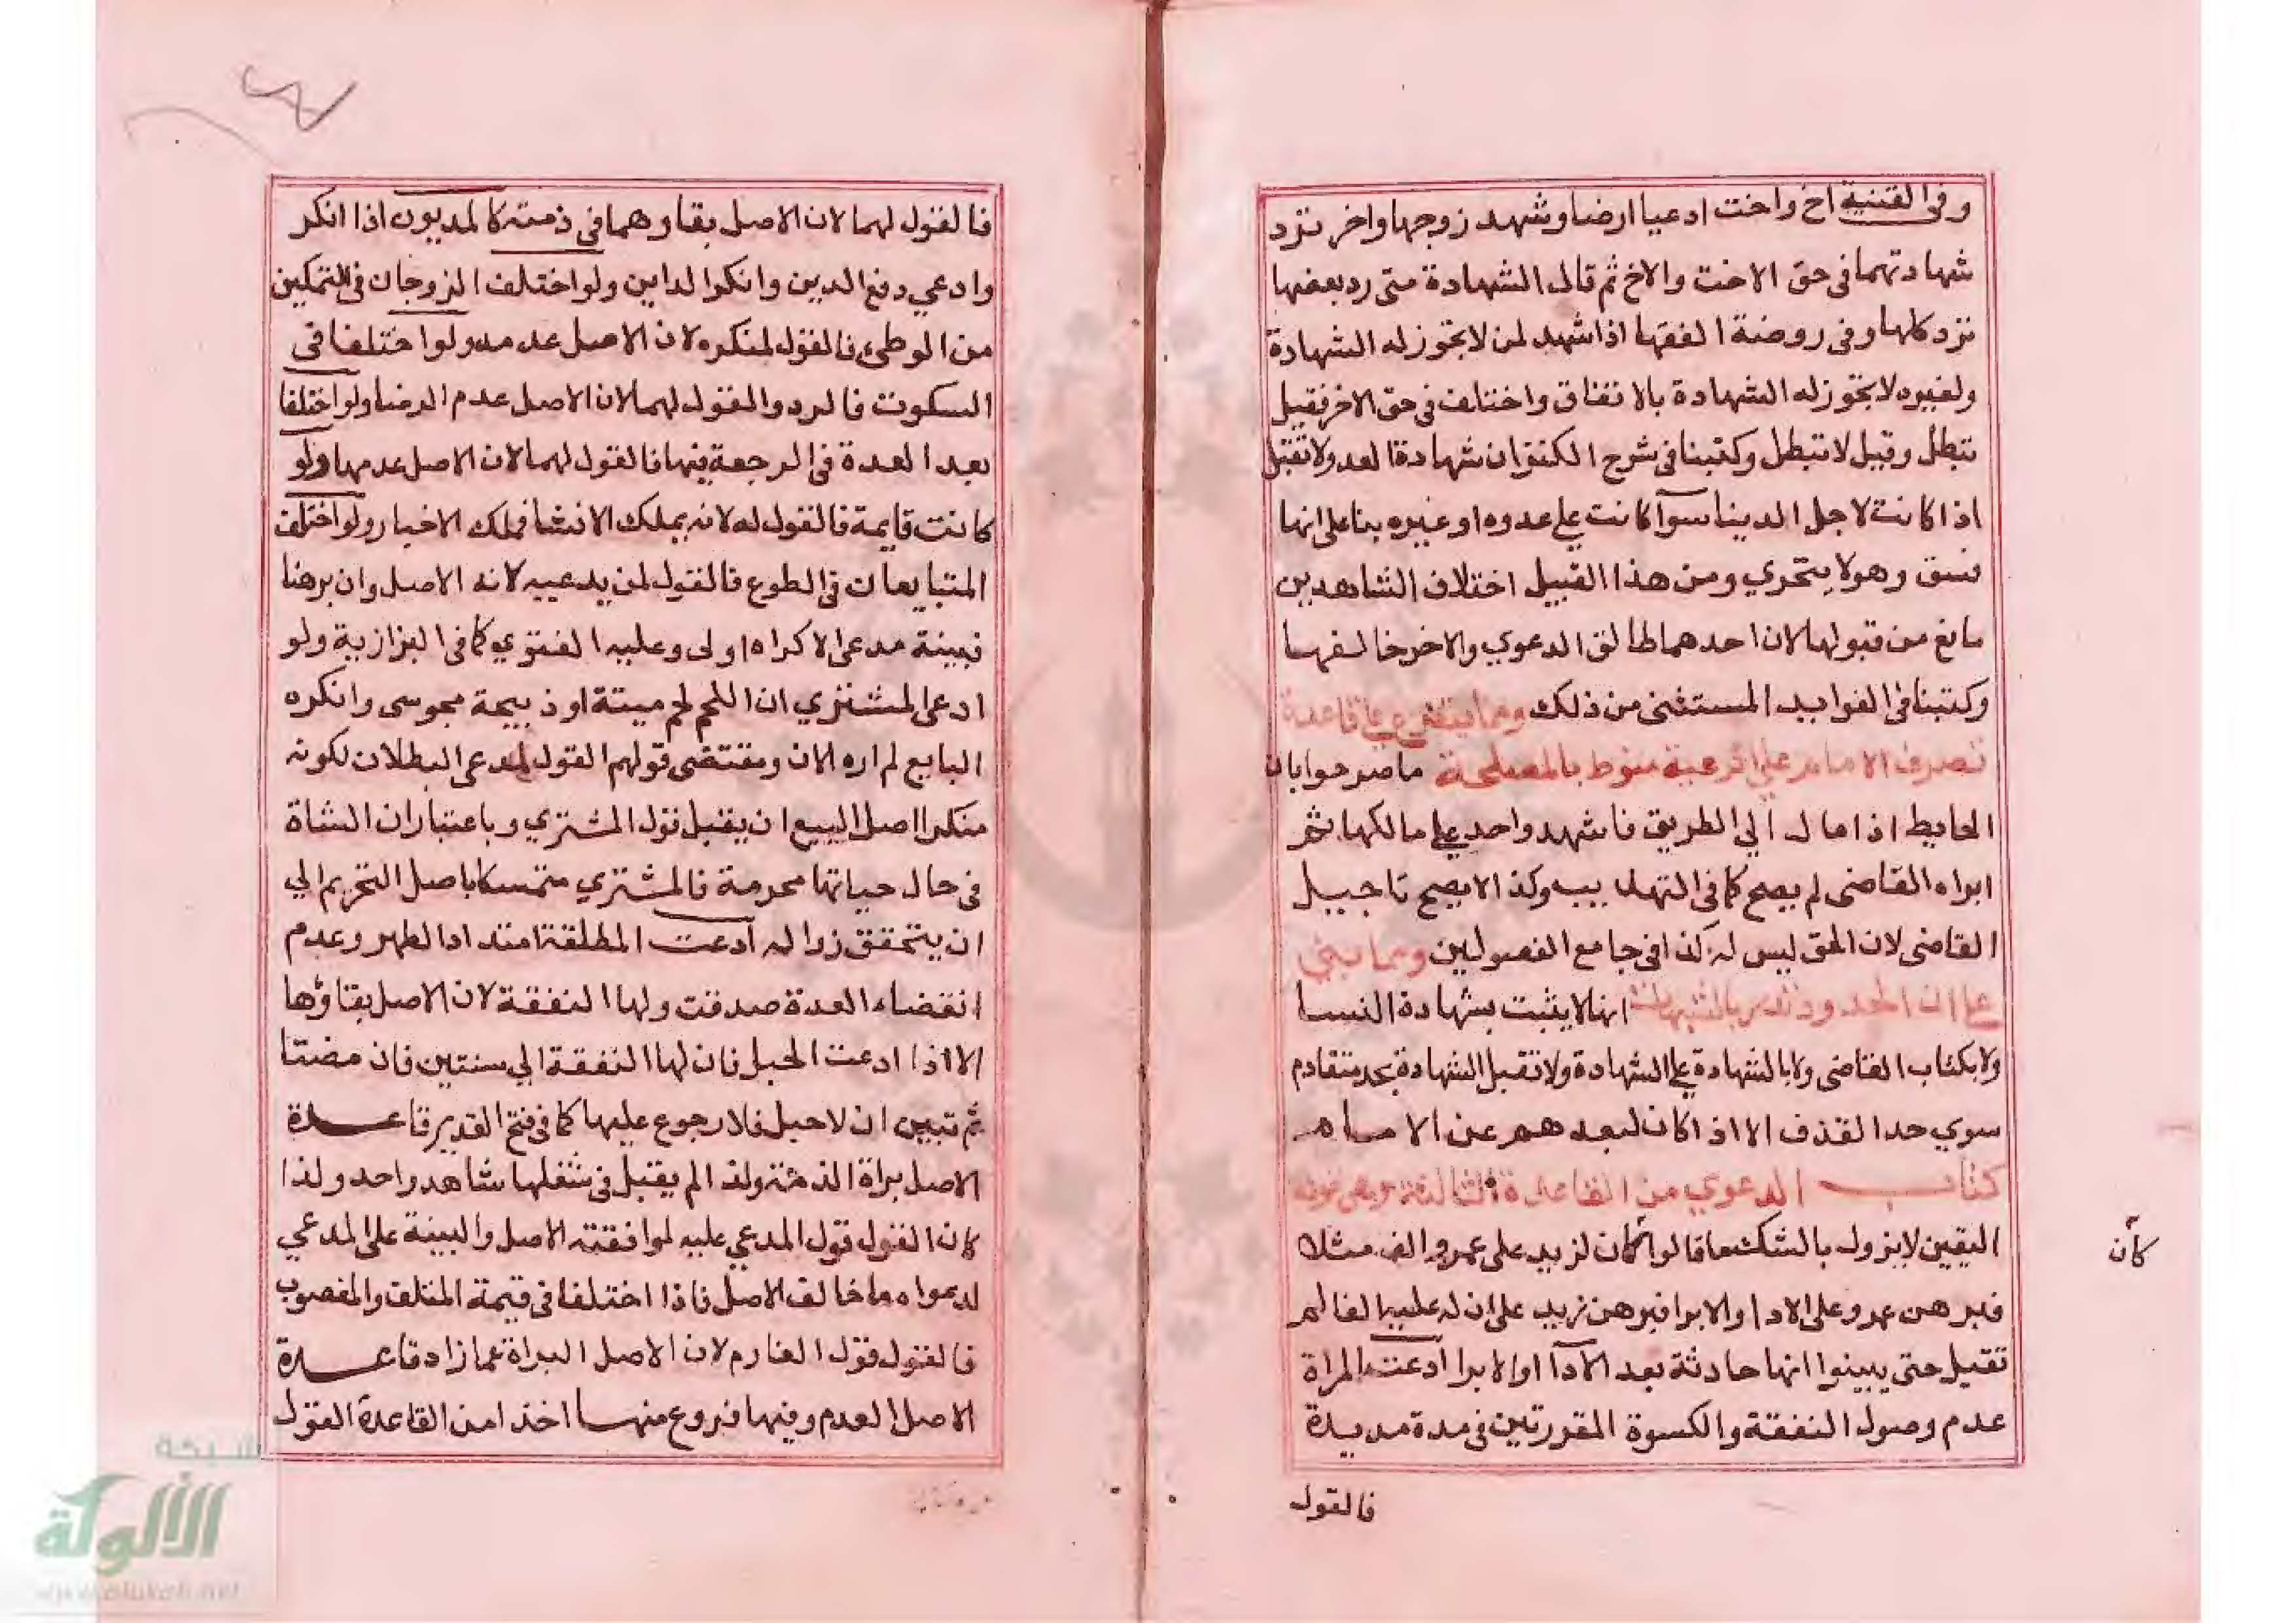 وفي القنية اخ واخت ادعيا ارضا وشهد زوجها واخر ترد
شهادتهما في حق الاخت والاخ ثم قال الشهادة متى رد بعضها
ترد كلها وفي روضة الفقها اذا شهد لمن لا تجوز له الشهادة
ولغيره لا تجوز له الشهادة بالاتفاق واختلف في حق الاخر فقيل
تبطل وقيل لا تبطل وكتبنا في شرح الكنز ان شهادة العدو لا تقبل
اذا كانت لاجل الدينا سوآ كانت على عدوه او غيره بنا على انها
فسق وهو لا يتحري ومن هذا القبيل اختلاف الشاهدين
مانع من قبولها لان احدهما طالق الدعوي والاخر خالفها
وكتبنا في الفوايد المستثنى من ذلك ومما يتفرع على قاعدة
تصرف الامام على الرعية منوط بالمصلحة ما صرحوا بان
الحايط اذا مال الي الطريق فاشهد واحد على مالكها ثم
ابراه القاضى لم يصح كما في التهذيب وكذا لا يصح تاجيل
القاضى لان الحق ليس له كذا في جامع الفصولين ومما بني
على ان الحدود تدر بالشبهات انها لا يثبت بشهادة النسا
ولا بكتاب القاضى ولا بالشهادة على الشهادة ولا تقبل الشهادة بحد متقادم
سوي حد القذف الا اذا كان لبعدهم عن الامام
كتاب الدعوي من القاعدة الثالثة وهي قوله
اليقين لا يزول بالشك ما قالوا كان لزيد على عمرو الف مثلا
كأن
فبرهن عمرو على الادا والابرا فبرهن زيد على ان له عليه الفا لم
تقبل حتى يبينوا انها حادثة بعد الادآ او الابرا ادعت المراة
عدم وصول النفقة والكسوة المقررتين في مدة مديدة
فالقول
فالقول لهما لان الاصل بقاوهما في ذمته كالمديون اذا انكر
وادعي دفع الدين وانكر الداين ولو اختلف الزوجان في التمكين
من الوطئ فالقول لمنكره لان الاصل عدمه ولو اختلفا في
السكوت فالرد والقول لهما لان الاصل عدم الرضا ولو اختلفا
بعد العدة في الرجعة فيها فالقول لهما لان الاصل عدمها ولو
كانت قايمة فالقول له لانه يملك الانشا فملك الاخبار ولو اختلف
المتبايعان في الطوع فالقول لمن يدعيه لانه الاصل وان برهنا
فبينة مدعى الاكراه اولى وعليه الفتوي كما في البزازية ولو
ادعى المشتري ان اللحم لحم ميتة او ذبيحة مجوسى وانكره
البايع لم اره الان ومقتضى قولهم القول لمدعى البطلان لكونه
منكرا اصل البيع ان يقبل قول المشتري وباعتبار ان الشاة
في حال حياتها محرمة فالمشتري متمسكا باصل التحريم الي
ان يتحقق زواله ادعت المطلقة امتداد الطهر وعدم
انقضاء العدة صدقت ولها النفقة لان الاصل بقاؤها
الا اذا ادعت الحبل فان لها النفقة الي سنتين فان مضتا
ثم تبين ان لا حبل فلا رجوع عليها كما في فتح القدير قاعدة
الاصل براة الذمته ولذا لم يقبل في شغلها شاهد واحد ولذا
كان القول قول المدعي عليه لموافقته الاصل والبينة على المدعي
لدعواه ما خالف الاصل فاذا اختلفا في قيمة المتلف والمغصوب
فالقول قول الغارم لان الاصل البراة عما زاد قاعدة
الاصل العدم وفيها فروع منها اخذا من القاعدة القول
شبكة
الألوكة
www.alukah.net